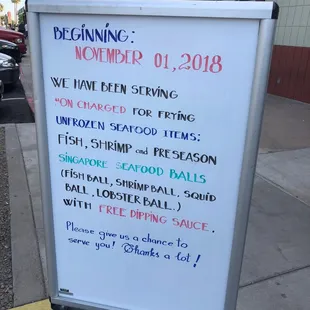 BEGINNING:
NOVEMBER 01, 2018
WE HAVE BEEN SERVING
"ON CHARGED FOR FRYING
UNFROZEN SEAFOOD ITEMS:
FISH, SHRIMP AND PRESEASON
SINGAPORE SEAFOOD BALLS
(FISH BALL, SHRIMP BALL, SQUID
BALL, LOBSTER BALL.)
WITH FREE DIPPING SAUCE.
Please give us a chance to
serve you! Thanks a lot!